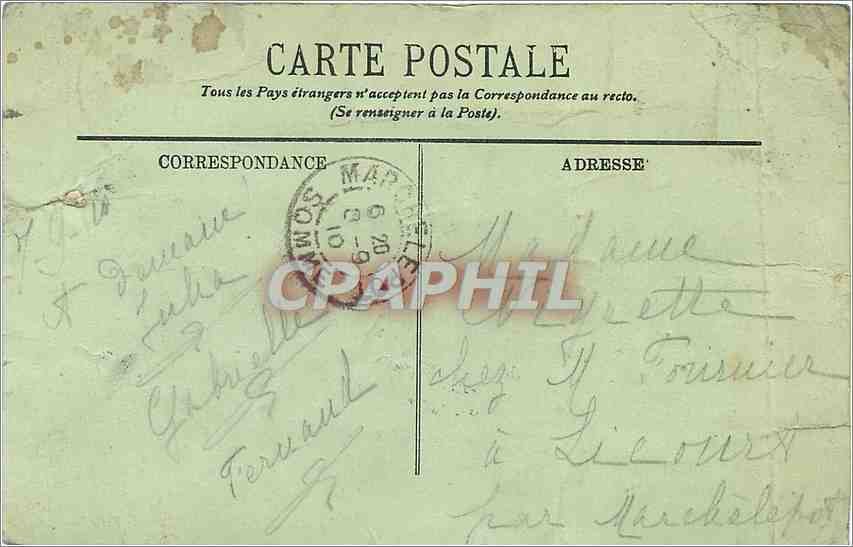 CARTE POSTALE
Tous les Pays étrangers n'acceptent pas la Correspondance au recto.
(Se renseigner à la Poste).
CORRESPONDANCE
ADRESSE
A Demain
Gabrielle
Fernand
MARCHELEPOT
6 20
8 - 9
10
SOMME
CPAPHIL
Madame
chez M Fournier
à Licourt
par Marchélepot